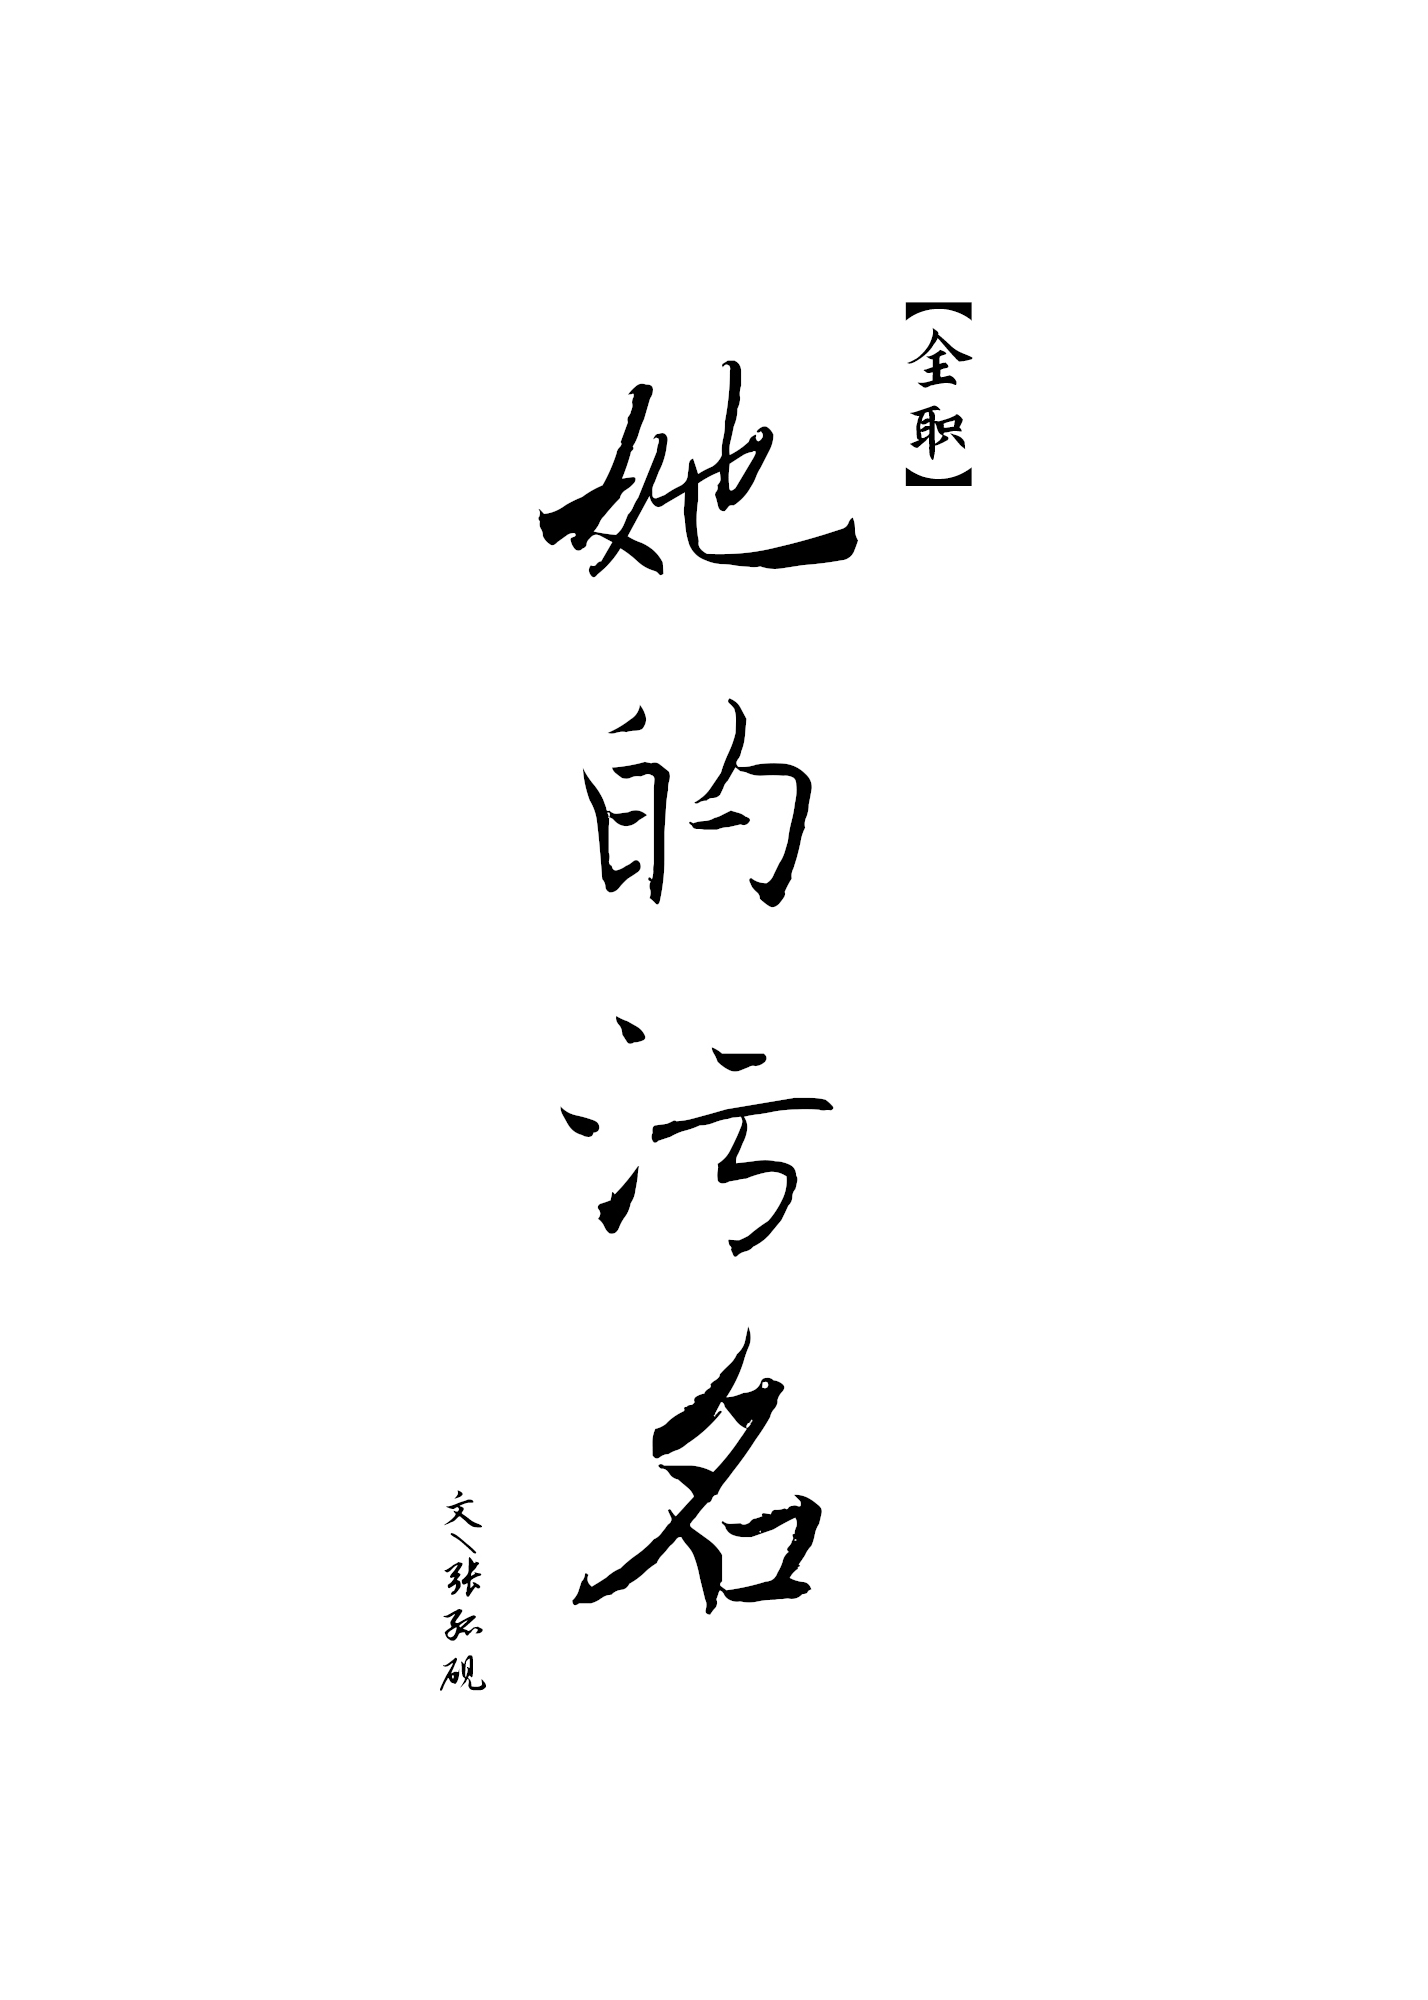 【全职】
她的污名
文/张孤砚